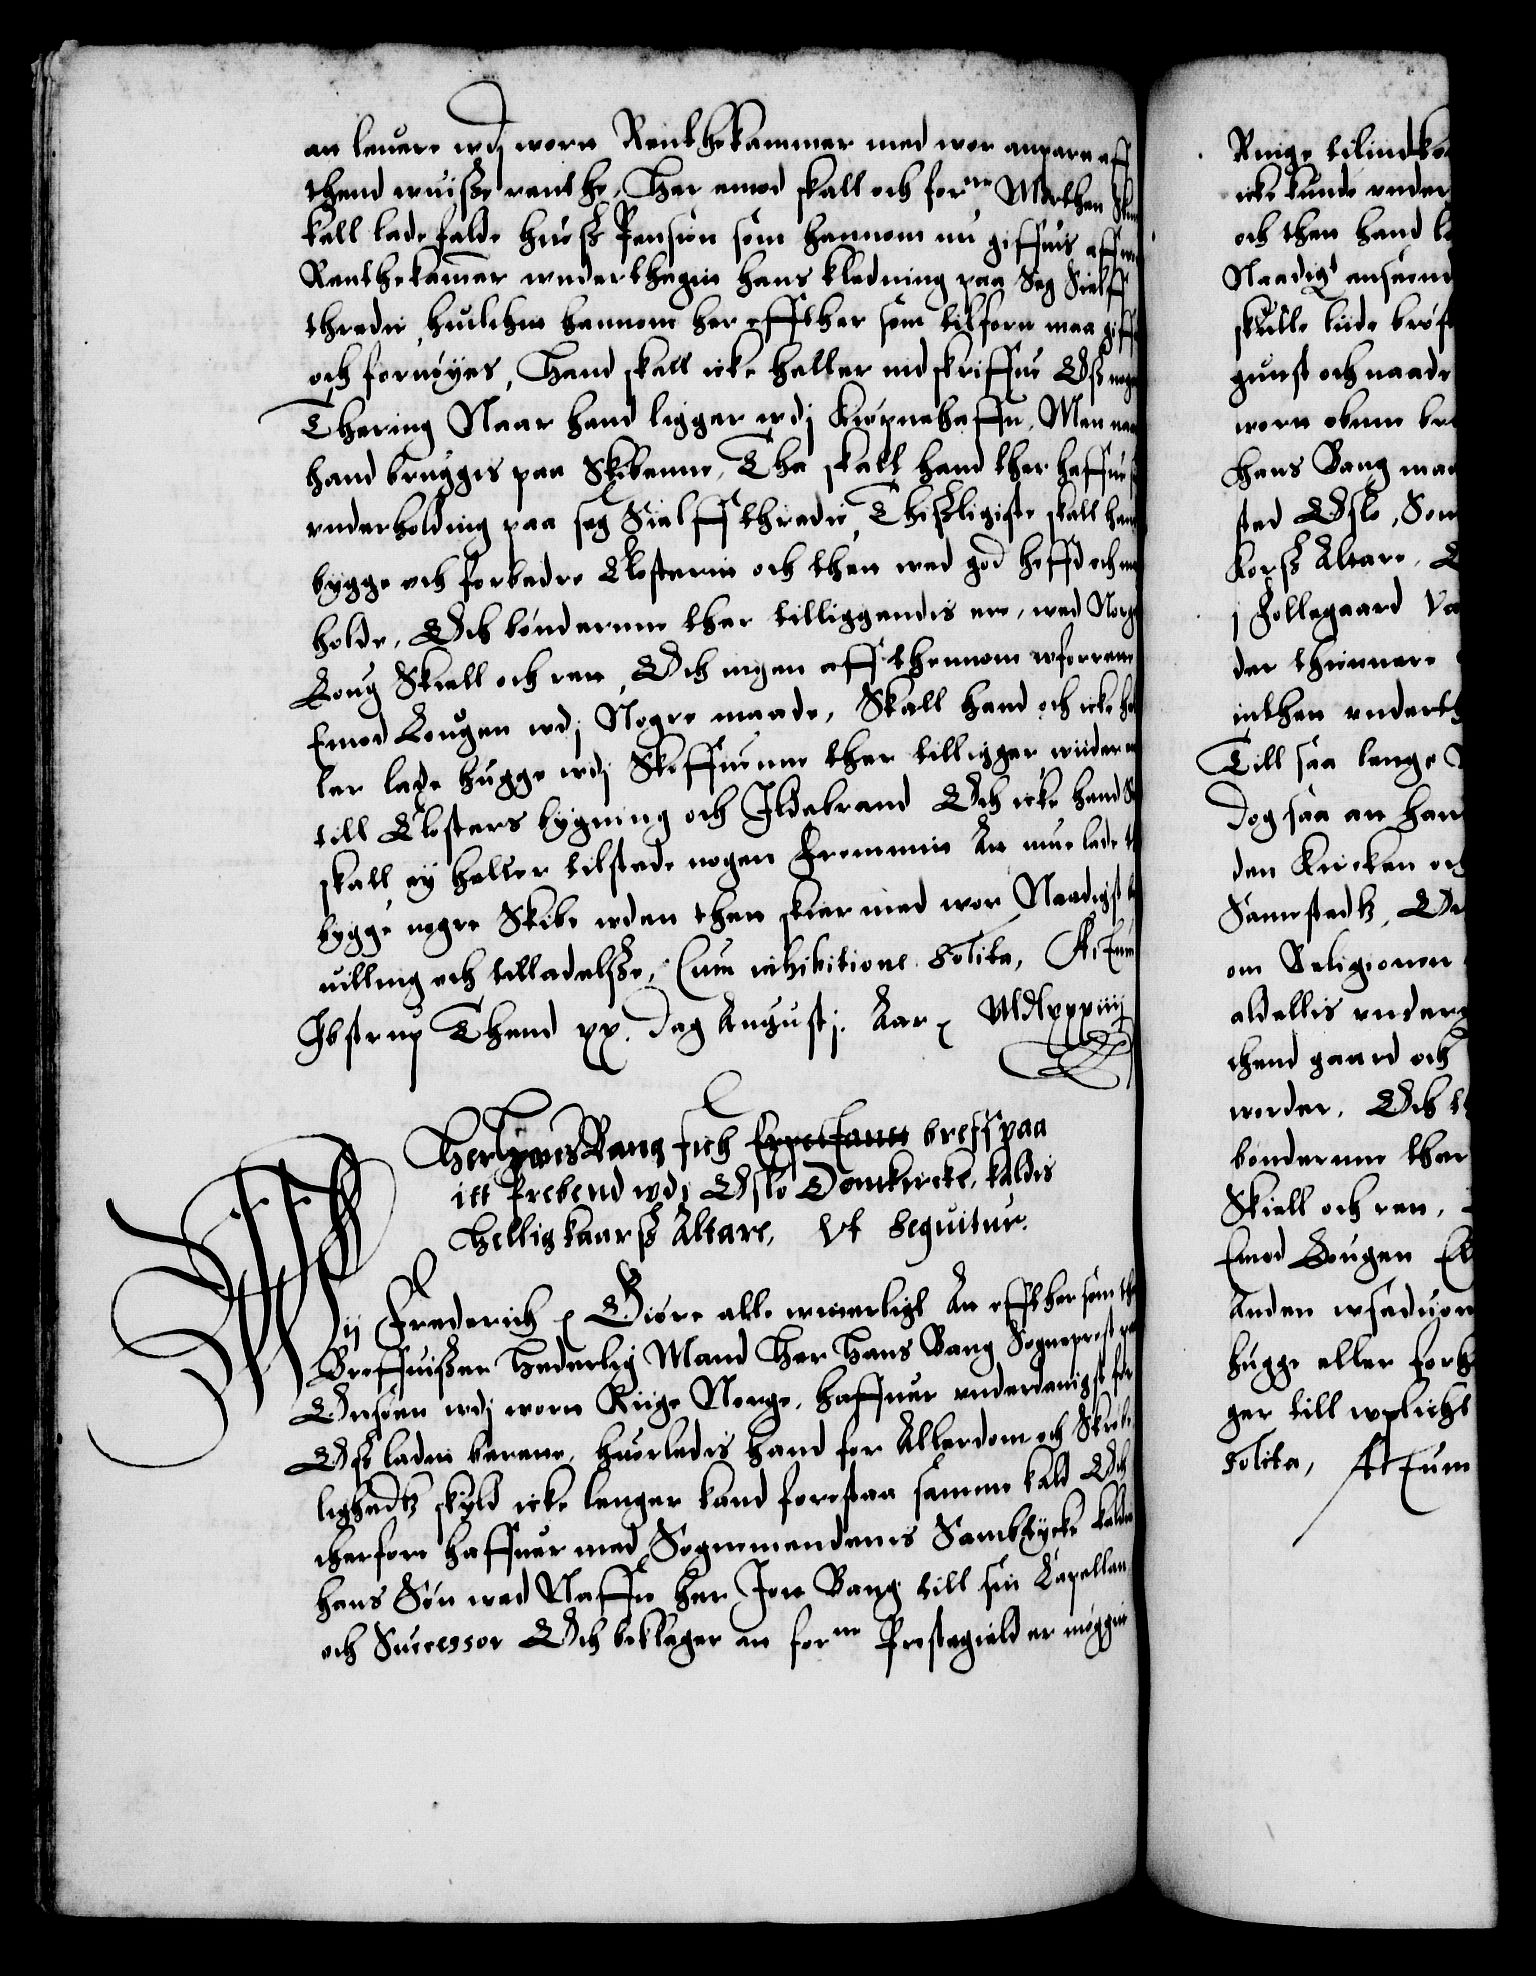 an leuere wdj worn Renthekammer med wor anparn aff
thend wuisse renthe, Her emod skall och forne Morthen
kall lade falde huess Pension som hannom nu giffuis aff
Renthekamer wnderthagin hans kledning paa Seg Sielff
thredie, huilchin hannom her effther som tilforn maa giff
och fornøyes, Hand skall icke heller nid skriffue Oss noge
Thering Naar hand ligger wdj Kiøpnehaffn, Men naa
hand bruges paa Skibenne, Tha skall hand ther haffue
vnderholding paa seg Sielff thredie, Thisligiste skall hand
bygge och forbedre Closterin och then wed god heffd och
holde, Och bønderne ther tilliggendis ere, wed Norgs
Loug Skiell och ren, Och ingen aff thennom wforrette
Emod Lougen wdj Nogre maade, Skall hand och icke hel
ler lade hugge wdj Skoffuenne ther tilligger widere
till Closters bygning och Ildebrand Och icke hand
skall ey heller tilstede nogen Fremmin An mue lade
bygge nogre Skibe wden then skier med wor Naadigst
uilling och tilladelsse, Cum inhibitione Solita, Actum
Ibstrup Thend xx. dag Augustj. Aar &c MDLxxxiiij

Her Hans Bang fich Expectants breff paa
itt prebend wdj Oslo Domkircke, kaldis
Hellig kaarss Altare, Vt Sequitur.

Wij Frederich &c Giøre alle witterligt An effther som
Breffuiser Hederlig Mand Her Hans Bang Sogneprest paa
Onsøen wdj wort Riige Norge, haffuer vnderdanigst for
Oss laden berette, huorledis hand for Alderdom och Skrøbe
lighedtz skyld icke lenger kand forestaa samme kald Och
therfore haffuer med Sognemendenis Samtycke kalde
hans Søn wed Naffn her Jon Bang till sin Capellan
och Successor Och beklager an forne Prestegield er møggin

Ringe tilind
icke kunde vnder
och then hand
Naadigt anseend
skulle liide brøst
gunst och naade
worn obene bre
Hans Bang maa
sted Oslo, Som
Korss Altare,
j Follegaard
der thienner
inthen vnderth
Till saa lenge
Dog saa an han
den Kircken och
Sammestedtz,
om Religionen
aldellis vnderg
thend gaard och
worder. Och
bønderne ther
Skiell och ren,
Emod Lougen
Anden wsedvon
hugge eller forh
ger till wplicht
Solita, Actum